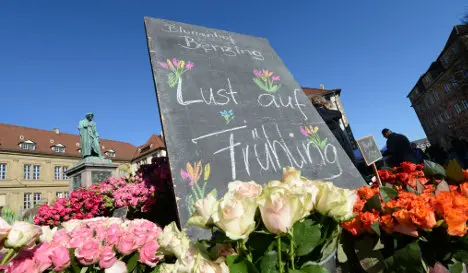 Blumenhof
Bienzling
Lust auf
Frühling